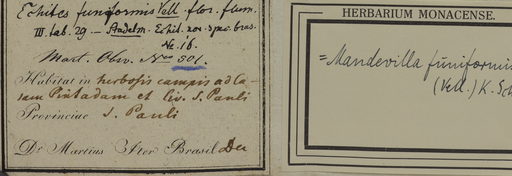 Echites funiformis Vell. flor. flum.
III. tab. 29 — Stadelm. Echit. nov. spec. bras.
Nr. 16.
Mart. Obs. Nro 501.
Habitat in herbosis campis ad Ca-
sam Pintadam et Civ. S. Pauli
Provinciae S. Pauli
Dr Martius Iter Brasil
HERBARIUM MONACENSE.
=Mandevilla funiformis
(Vell.) K. Sch